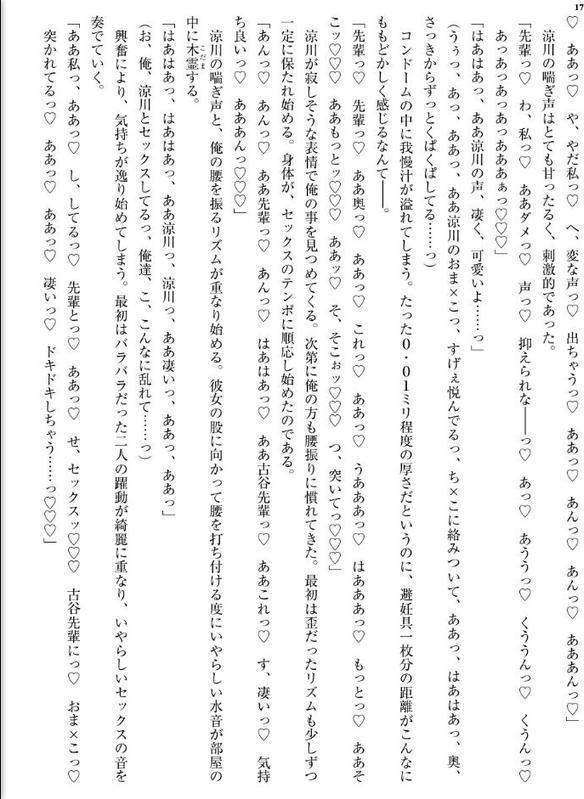 17
♡　ああっ♡　や、やだ私っ♡　へ、変な声っ♡　出ちゃうっ♡　ああっ♡　あんっ♡　あんっ♡　あああんっ♡」
涼川の喘ぎ声はとても甘ったるく、刺激的であった。
「先輩っ♡　わ、私っ♡　ああダメっ♡　声っ♡　抑えられな――っ♡　あっ♡　あううっ♡　くううんっ♡　くうんっ♡
あっあっあっあっあああぁっ♡♡♡」
「はあはあっ、ああ涼川の声、凄く、可愛いよ……っ」
（うぅっ、あっ、ああっ、ああ涼川のおま×こっ、すげぇ悦んでるっ、ち×こに絡みついて、ああっ、はあはあっ、奥、
さっきからずっとくぱくぱしてる……っ）
コンドームの中に我慢汁が溢れてしまう。たった０・０１ミリ程度の厚さだというのに、避妊具一枚分の距離がこんなに
ももどかしく感じるなんて――。
「先輩っ♡　先輩っ♡　ああ奥っ♡　ああっ♡　これっ♡　ああっ♡　うあああっ♡　はあああっ♡　もっとっ♡　ああそ
こッ♡♡♡　ああもっとッ♡♡♡　ああッ♡　そ、そこぉッ♡♡♡　つ、突いてっ♡♡♡」
涼川が寂しそうな表情で俺の事を見つめてくる。次第に俺の方も腰振りに慣れてきた。最初は歪だったリズムも少しずつ
一定に保たれ始める。身体が、セックスのテンポに順応し始めたのである。
「あんっ♡　あんっ♡　ああ先輩っ♡　あんっ♡　はあはあっ♡　ああ古谷先輩っ♡　ああこれっ♡　す、凄いっ♡　気持
ち良いっ♡　あああんっ♡♡♡」
涼川の喘ぎ声と、俺の腰を振るリズムが重なり始める。彼女の股に向かって腰を打ち付ける度にいやらしい水音が部屋の
中に木霊する。
こだま
「はあはあっ、はあはあっ、ああ涼川っ、涼川っ、ああ凄いっ、ああっ、ああっ」
（お、俺、涼川とセックスしてるっ、俺達、こ、こんなに乱れて……っ）
興奮により、気持ちが逸り始めてしまう。最初はバラバラだった二人の躍動が綺麗に重なり、いやらしいセックスの音を
奏でていく。
「ああ私っ、ああっ♡　し、してるっ♡　先輩とっ♡　ああっ♡　せ、セックスッ♡♡♡　古谷先輩にっ♡　おま×こっ♡
突かれてるっ♡　ああっ♡　ああっ♡　凄いっ♡　ドキドキしちゃう……っ♡♡♡」